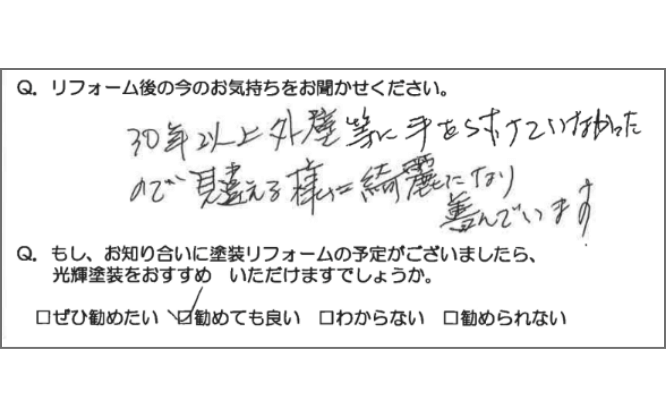 Q. リフォーム後の今のお気持ちをお聞かせください。
30年以上外壁等に手をつけていなかった
ので見違える様に綺麗になり
善んでいます
Q. もし、お知り合いに塗装リフォームの予定がございましたら、
光輝塗装をおすすめ いただけますでしょうか。
□ぜひ勧めたい ☑勧めても良い □わからない □勧められない